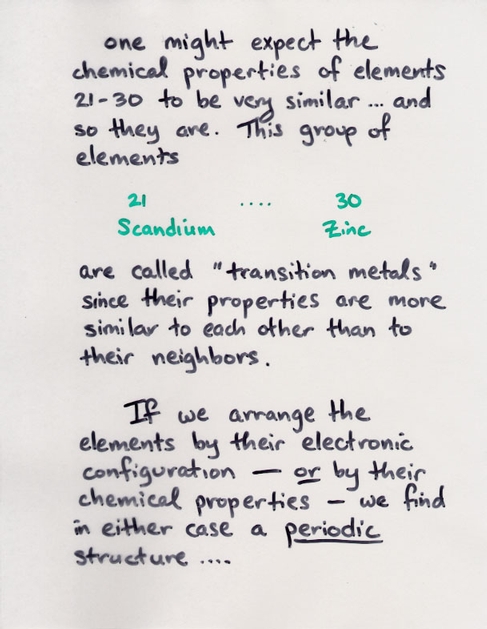 one might expect the
chemical properties of elements
21-30 to be very similar ... and
so they are. This group of
elements
21 .... 30
Scandium Zinc
are called "transition metals"
since their properties are more
similar to each other than to
their neighbors.
If we arrange the
elements by their electronic
configuration — or by their
chemical properties — we find
in either case a periodic
structure ....